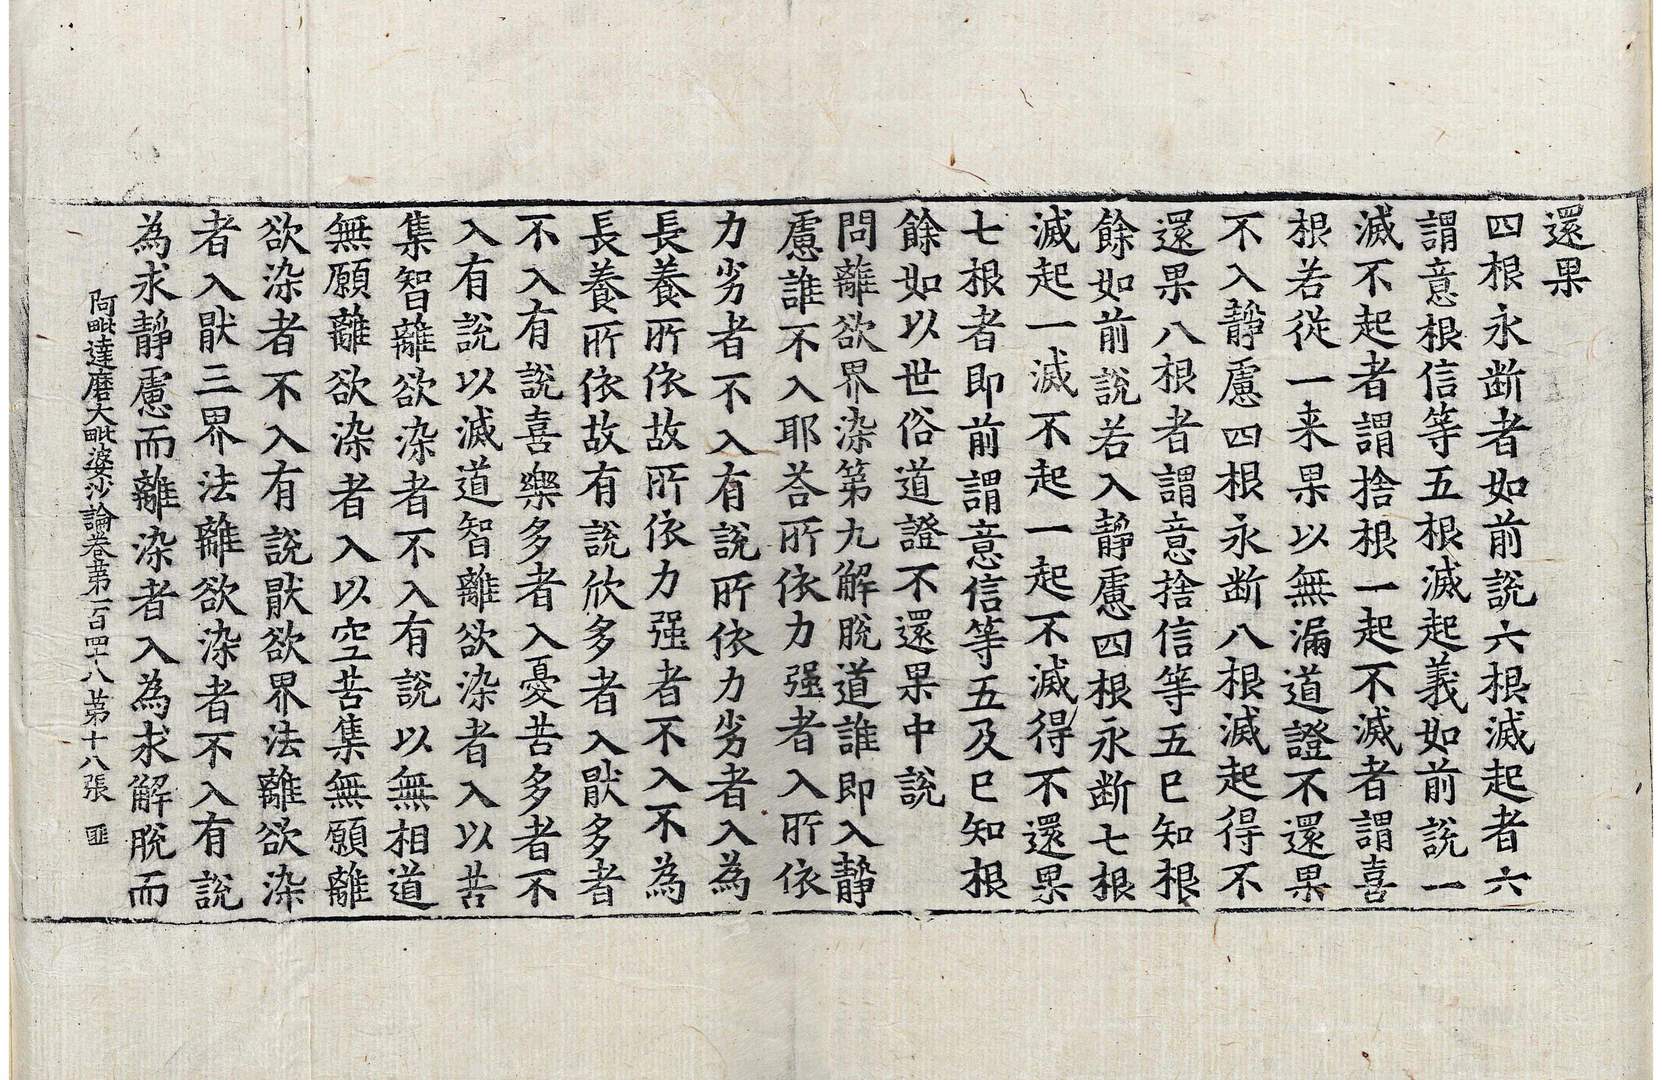 還果
四根永断者如前說六根滅起者六
謂意根信等五根滅起義如前說一
滅不起者謂捨根一起不滅者謂喜
根若從一来果以無漏道證不還果
不入靜慮四根永断八根滅起得不
還果八根者謂意捨信等五已知根
餘如前說若入靜慮四根永断七根
滅起一滅不起一起不滅得不還果
七根者即前謂意信等五及已知根
餘如以世俗道證不還果中說
問離欲界染第九解脫道誰即入靜
慮誰不入耶荅所依力强者入所依
力劣者不入有說所依力劣者入為
長養所依故所依力强者不入不為
長養所依故有說欣多者入猒多者
不入有說喜樂多者入憂苦多者不
入有說以滅道智離欲染者入以苦
集智離欲染者不入有說以無相道
無願離欲染者入以空苦集無願離
欲染者不入有說猒欲界法離欲染
者入猒三界法離欲染者不入有說
為求靜慮而離染者入為求解脫而
阿毗達磨大毗婆沙論卷苐一百四十八 苐十八張 匪